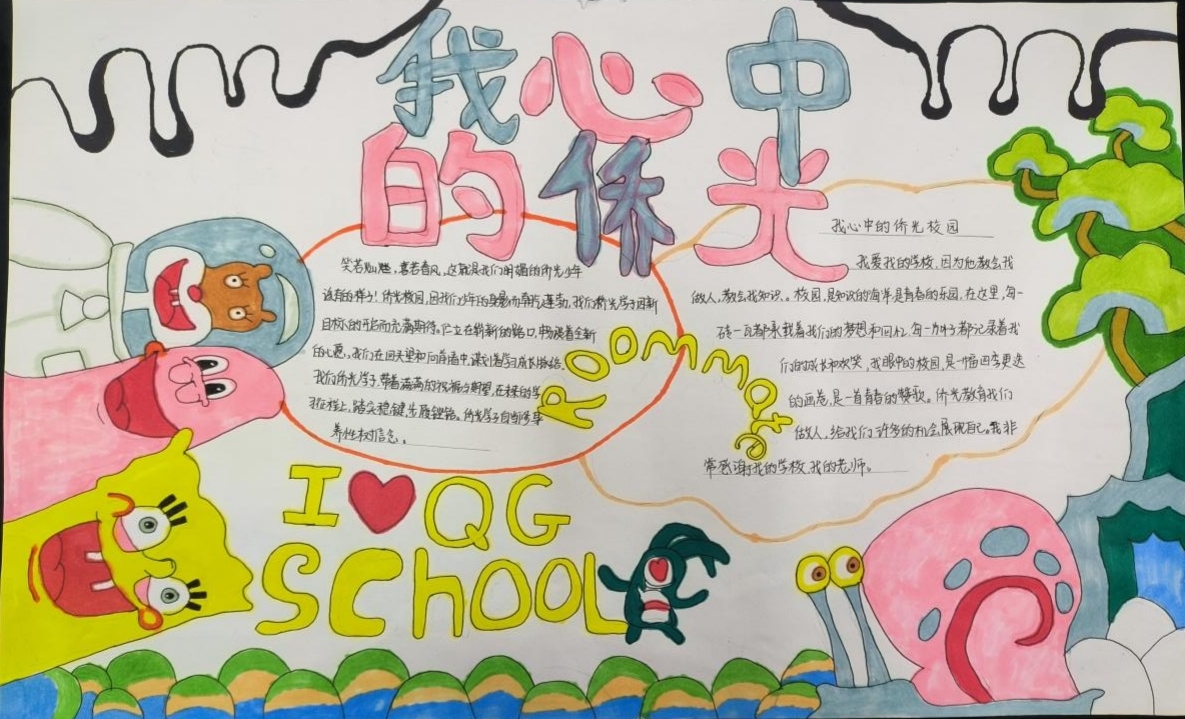 我心中
的侨光
笑若灿燃，喜若春风，这就是我们明媚的侨光少年
该有的样子！侨光校园，因我们少年的身影而朝气蓬勃，我们侨光学子因新
目标的开始而充满期待。伫立在崭新的路口，书写着全新
的心愿。我们在回头望和向前看中
我们侨光学子，带着满满的祝福与期望，在接的学
征程上，踏实稳健，步履铿锵。侨光学子自当修身
养性树信念。
Roommate
我心中的侨光校园
我爱我的学校，因为他教会我
做人，教会我知识。校园，是知识的海洋是青春的乐园，在这里，每一
砖一瓦都承载着我们的梦想和回忆，每一力科子都记录着我
们的成长和欢笑，我眼中的校园，是一幅四季更迭
的画卷，是一首青春的赞歌。侨光教育我们
做人，给我们许多的机会展现自己。我非
常感谢我的学校，我的老师。
I ❤ QG
SChOOL